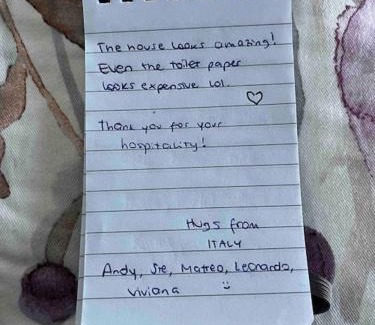 The house looks amazing!
Even the toilet paper
looks expensive lol.
Thank you for your
hospitality!
Hugs from
ITALY
Andy, Ste, Matteo, Leonardo,
Viviana